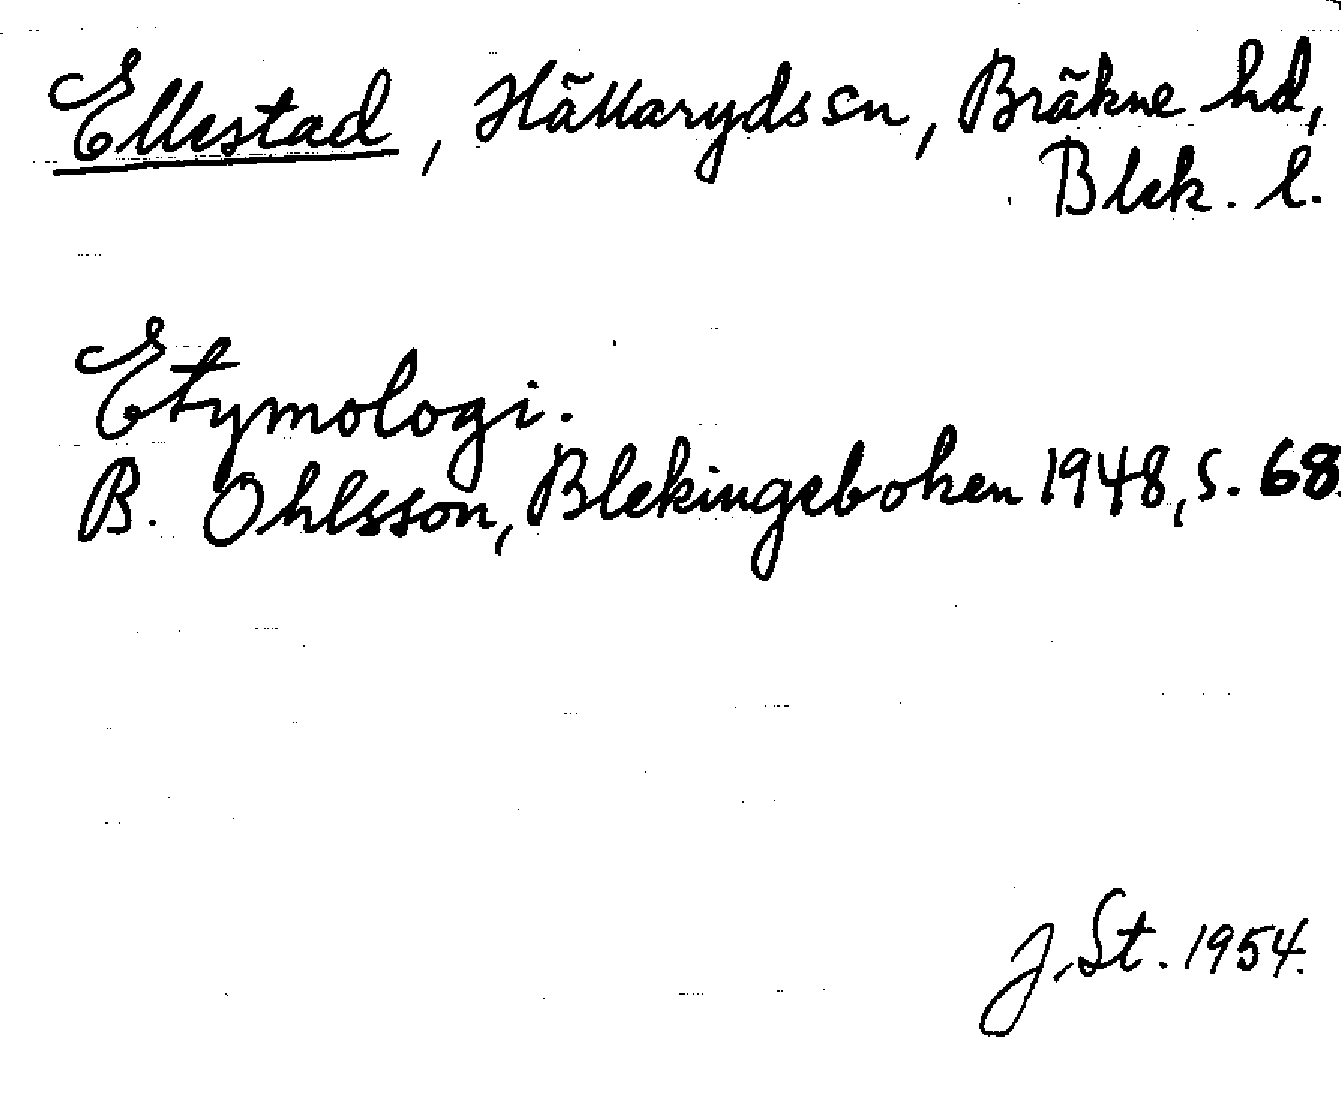 Ellestad, Hällaryds sn, Bräkne hd,
Blek. l.
Etymologi.
B. Ohlsson, Blekingeboken 1948, s. 68.
J. St. 1954.